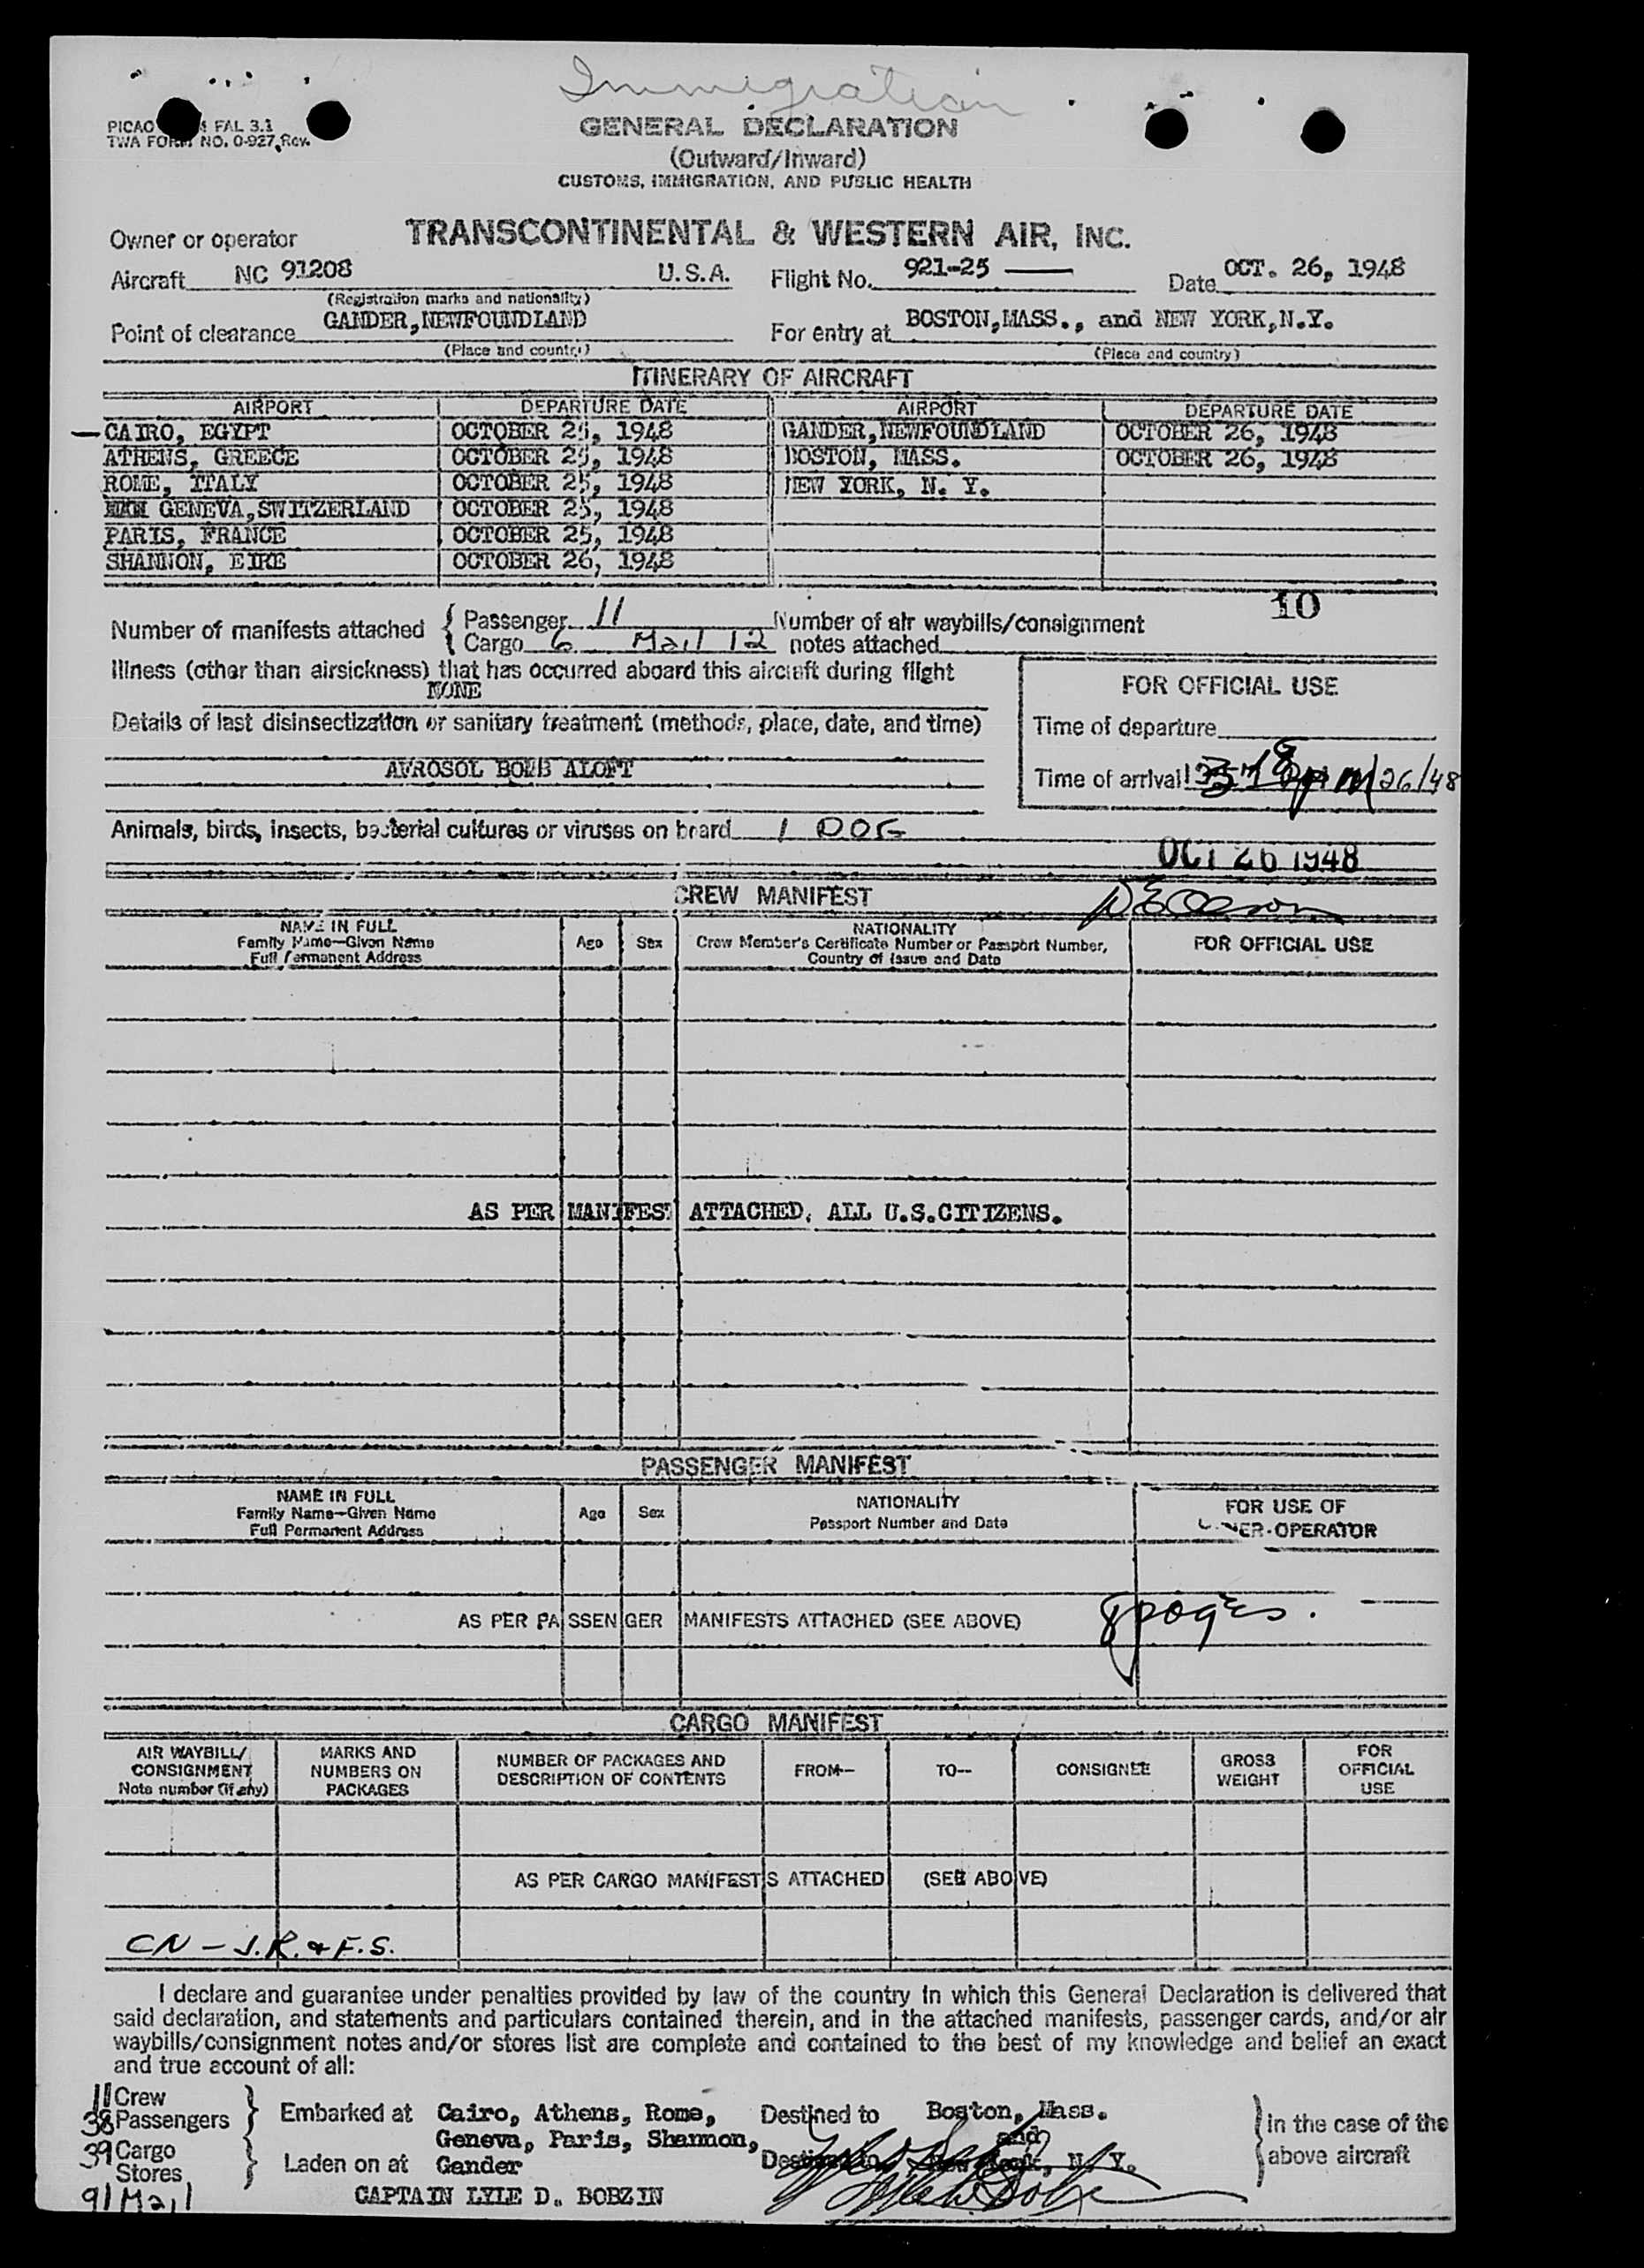 Immigration
PICAO FAL 3.1
TWA FORM NO. 0-927 Rev.
GENERAL DECLARATION
(Outward/Inward)
CUSTOMS, IMMIGRATION, AND PUBLIC HEALTH
Owner or operator TRANSCONTINENTAL & WESTERN AIR, INC.
Aircraft NC 91208 U.S.A. Flight No. 921-25 Date OCT. 26, 1948
(Registration marks and nationality)
Point of clearance GANDER,NEWFOUNDLAND For entry at BOSTON,MASS., and NEW YORK,N.Y.
(Place and country) (Place and country)
ITINERARY OF AIRCRAFT
AIRPORT DEPARTURE DATE AIRPORT DEPARTURE DATE
CAIRO, EGYPT OCTOBER 25, 1948 GANDER,NEWFOUNDLAND OCTOBER 26, 1948
ATHENS, GREECE OCTOBER 25, 1948 BOSTON, MASS. OCTOBER 26, 1948
ROME, ITALY OCTOBER 25, 1948 NEW YORK, N. Y.
GENEVA,SWITZERLAND OCTOBER 25, 1948
PARIS, FRANCE OCTOBER 25, 1948
SHANNON, EIRE OCTOBER 26, 1948
Number of manifests attached { Passenger 11 Number of air waybills/consignment 10
Cargo 6 Mail 12 notes attached
Illness (other than airsickness) that has occurred aboard this aircraft during flight
NONE
FOR OFFICIAL USE
Details of last disinsectization or sanitary treatment (methods, place, date, and time)
Time of departure
AVROSOL BOMB ALOFT
Time of arrival 26/48
Animals, birds, insects, bacterial cultures or viruses on board 1 DOG
OCT 26 1948
CREW MANIFEST
NAME IN FULL
Family Name—Given Name
Full Permanent Address
Age Sex
NATIONALITY
Crew Member's Certificate Number or Passport Number,
Country of Issue and Date
FOR OFFICIAL USE
AS PER MANIFEST ATTACHED. ALL U.S.CITIZENS.
PASSENGER MANIFEST
NAME IN FULL
Family Name—Given Name
Full Permanent Address
Age Sex
NATIONALITY
Passport Number and Date
FOR USE OF
OWNER-OPERATOR
AS PER PASSENGER MANIFESTS ATTACHED (SEE ABOVE) 8 pages.
CARGO MANIFEST
AIR WAYBILL/
CONSIGNMENT
Note number (if any)
MARKS AND
NUMBERS ON
PACKAGES
NUMBER OF PACKAGES AND
DESCRIPTION OF CONTENTS
FROM—
TO—
CONSIGNEE
GROSS
WEIGHT
FOR
OFFICIAL
USE
AS PER CARGO MANIFESTS ATTACHED (SEE ABOVE)
CN - J.R. & F.S.
I declare and guarantee under penalties provided by law of the country in which this General Declaration is delivered that
said declaration, and statements and particulars contained therein, and in the attached manifests, passenger cards, and/or air
waybills/consignment notes and/or stores list are complete and contained to the best of my knowledge and belief an exact
and true account of all:
11 Crew
38 Passengers } Embarked at Cairo, Athens, Rome, Destined to Boston, Mass. } in the case of the
Geneva, Paris, Shannon, and
39 Cargo } Laden on at Gander Destined to New York, N. Y. } above aircraft
Stores
91 Mail CAPTAIN LYLE D. BOBZIN